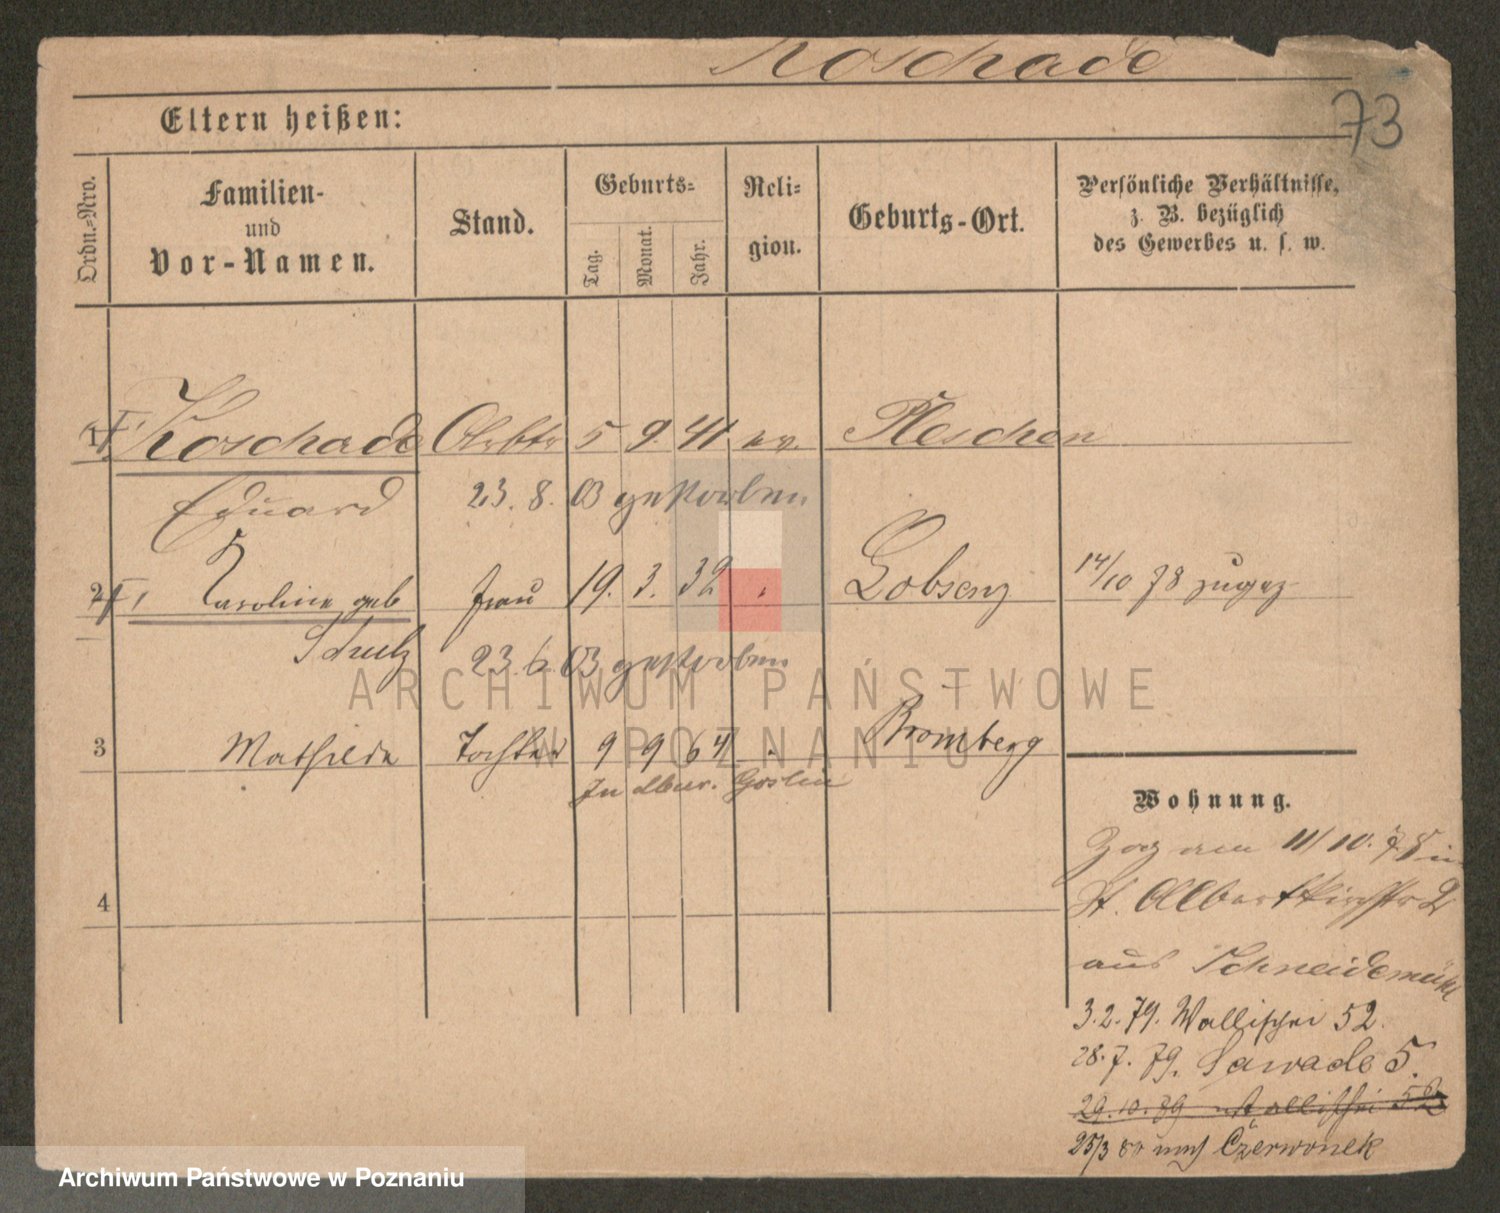 Koschade
73
Eltern heißen:
Ordn.-Nro.
Familien-
und
Vor-Namen.
Stand.
Geburts-
Tag.
Monat.
Jahr.
Reli-
gion.
Geburts-Ort.
Persönliche Verhältnisse,
z. B. bezüglich
des Gewerbes u. s. w.
1 Koschade 5 9 41 ev. Pleschen
Eduard 23. 8. 03 gestorben
2 Karoline geb Frau 19. 3. 32 Lobsenz 14/10 78 zugez
Schulz 23. 6. 03 gestorben
3 Mathilde Tochter 9 9 64 Bromberg
In Goslin
4
Wohnung.
Zog am 11/10. 78 in
St. Albertkirchstr 2
aus Schneidemühl
3. 2. 79. Wallischei 52.
28. 7. 79. Sawade 5.
29. 10. 89 Wallischei 52
25/3 80 nach Czerwonek
ARCHIWUM PAŃSTWOWE
W POZNANIU
Archiwum Państwowe w Poznaniu